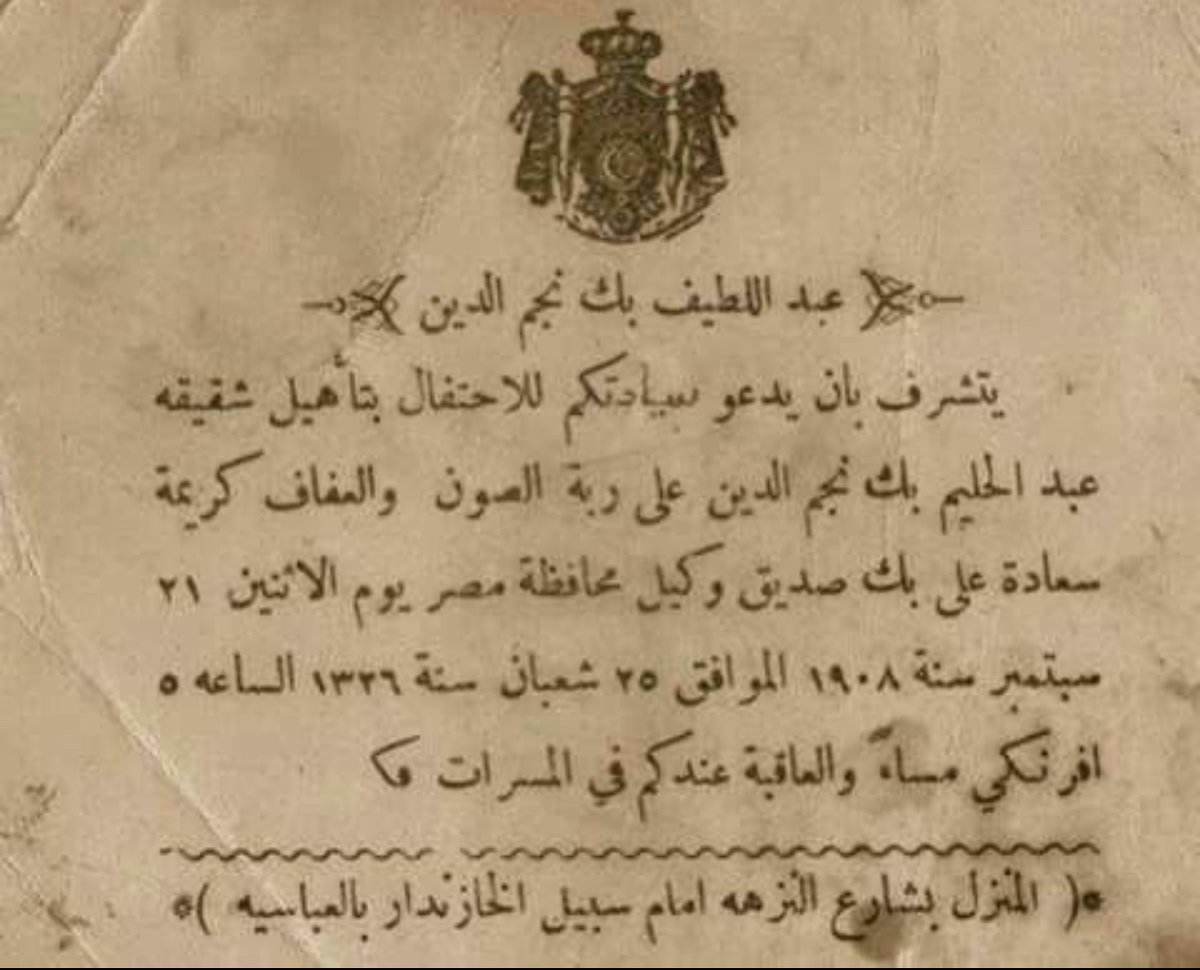 عبد اللطيف بك نجم الدين
يتشرف بان يدعو سيادتكم للاحتفال بتأهيل شقيقه
عبد الحليم بك نجم الدين على ربة الصون والعفاف كريمة
سعادة على بك صديق وكيل محافظة مصر يوم الاثنين ٢١
سبتمبر سنة ١٩٠٨ الموافق ٢٥ شعبان سنة ١٣٢٦ الساعه ٥
افرنكي مساءً والعاقبة عندكم في المسرات
*( المنزل بشارع النزهه امام سبيل الخازندار بالعباسيه )*